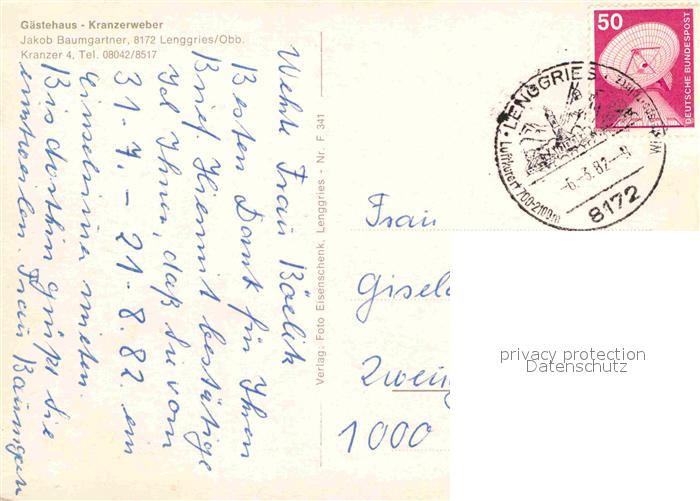 Gästehaus - Kranzerweber
Jakob Baumgartner, 8172 Lenggries/Obb.
Kranzer 4, Tel. 08042/8517
Werte Frau
Besten Dank für Ihren
Brief. Hiermit bestätige
ich Ihnen, daß Sie vom
31.7. – 21.8.82. ein
mieten.
Bis dorthin grüßt Sie
einstweilen. Frau Baumgart
Verlag: Foto Eisenschenk, Lenggries - Nr. F 341
50
DEUTSCHE BUNDESPOST
LENGGRIES
Luftkurort 700-2100m
-6.-3.82.-9
8172
Frau
Gisel
Zwein
1000
privacy protection
Datenschutz